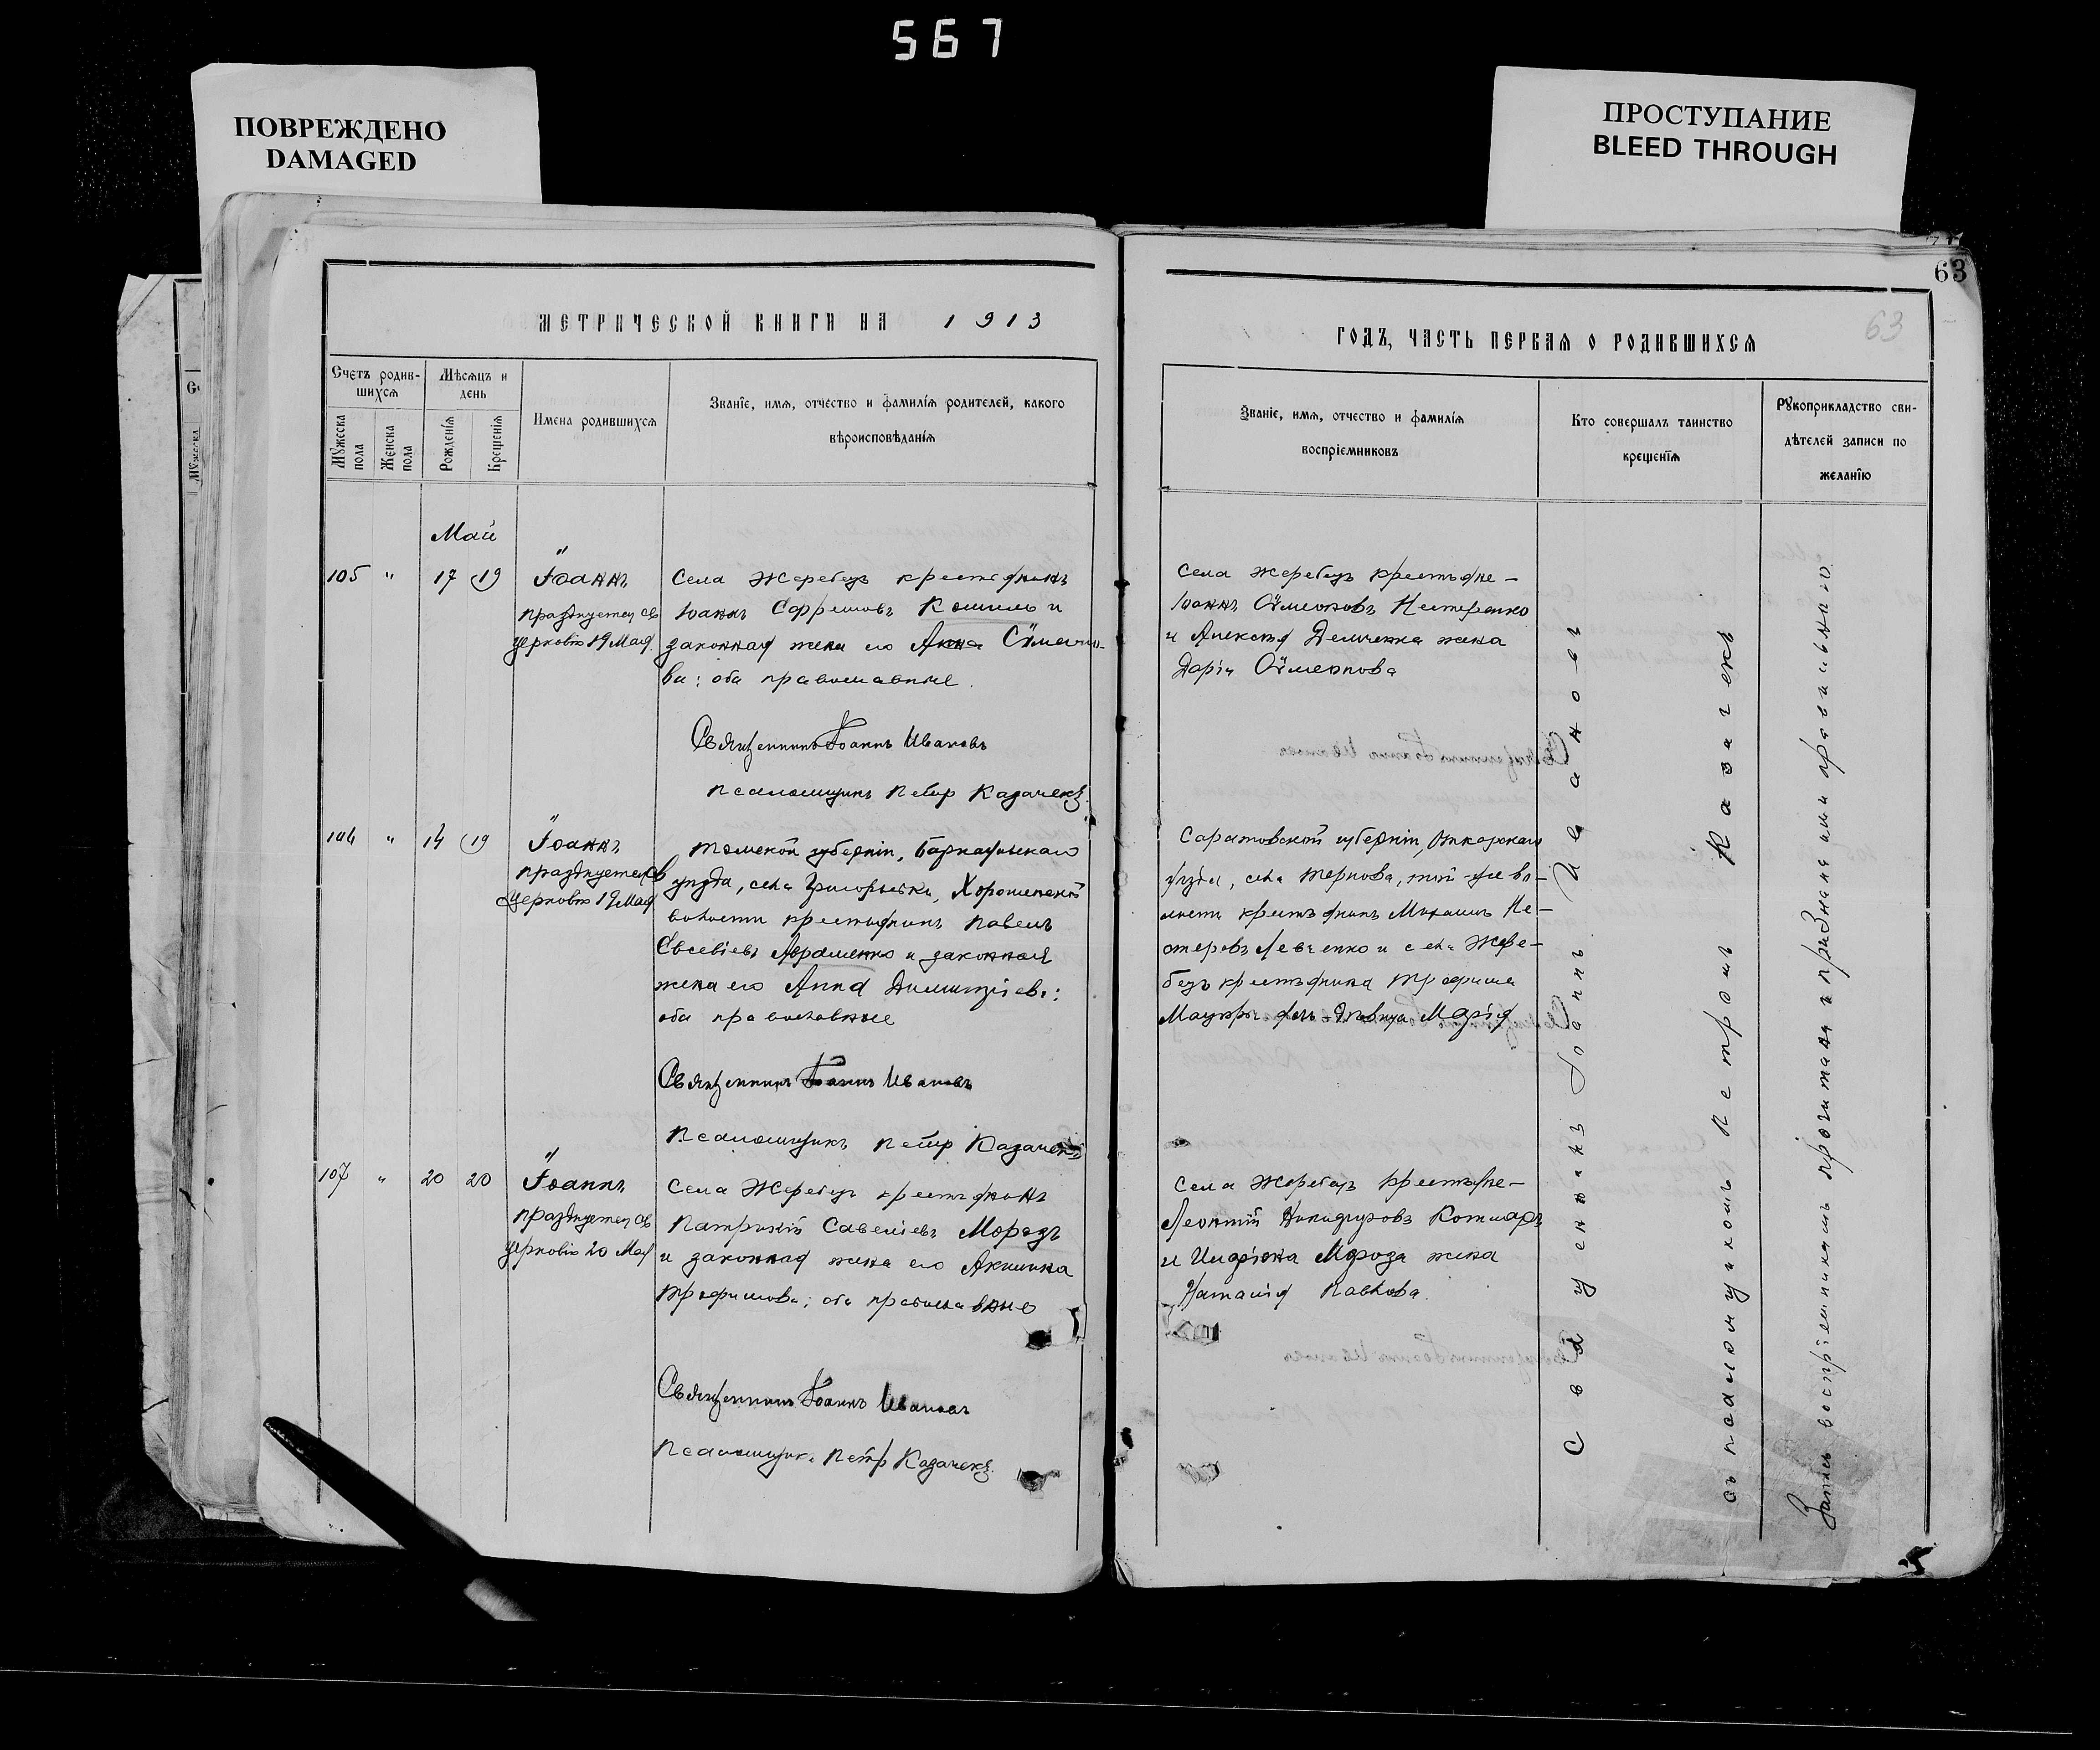 567
ПОВРЕЖДЕНО
DAMAGED
ПРОСТУПАНИЕ
BLEED THROUGH
63
63
МЕТРИЧЕСКОЙ КНИГИ НА 1913
ГОДЪ, ЧАСТЬ ПЕРВАЯ О РОДИВШИХСЯ
Счетъ родив-
шихся
Мѣсяцъ и
день
Мужеска
пола
Женска
пола
Рожденія
Крещенія
Имена родившихся
Званіе, имя, отчество и фамилія родителей, какого
вѣроисповѣданія
Званіе, имя, отчество и фамилія
воспріемниковъ
Кто совершалъ таинство
крещенія
Рукоприкладство сви-
дѣтелей записи по
желанію
Май
105 " 17 19 Іоаннъ
празднуется св
церковію 19 Мая.
Села Жеребецъ крестьянинъ
Іоаннъ Кошель и
законная жена его Анна Сѵмеоно-
ва: оба православные.
Священникъ Іоаннъ Ивановъ
Псаломщикъ Петръ Казачекъ.
Села Жеребецъ крестьяне –
Іоаннъ Сѵмеоновъ Нестеренко
и Алексѣя жена
Дарія Сѵмеонова
106 " 14 19 Іоаннъ
празднуется св
церковію 19 Мая
Томской губерніи, Барнаульскаго
уѣзда, села Григорьевки,
волости крестьянинъ Павелъ
Евсевіевъ Авраменко и законная
жена его Анна Димитріева:
оба православные
Священникъ Іоаннъ Ивановъ
Псаломщикъ Петръ Казачекъ
Саратовской губерніи, Аткарскаго
уѣзда, села Тернова, той-же во-
лости крестьянинъ Михаилъ Не-
стеровъ Левченко и села Жере-
бецъ крестьянина Трофима
дочь-дѣвица Марія
107 " 20 20 Іоаннъ
празднуется св
церковію 20 Мая
Села Жеребецъ крестьянинъ
Патрикій Савеліевъ Морозъ
и законная жена его Акилина
Трофимова; оба православные
Священникъ Іоаннъ Ивановъ
Псаломщик. Петръ Казачекъ.
Села Жеребецъ крестьяне –
Леонтій Никифоровъ Котляръ
и Иларіона Мороза жена
Наталія Павлова.
Священникъ Іоаннъ Ивановъ
съ псаломщикомъ Петромъ Казачекъ
Запись воспріемникамъ прочитана и признана ими правильною